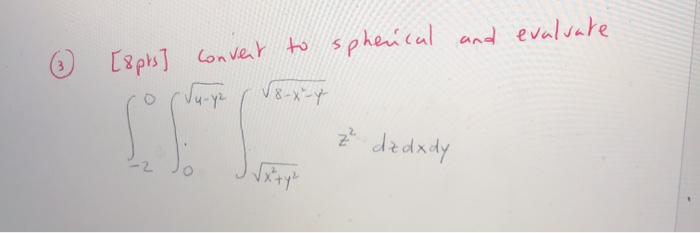 ③ [8pts] Convert to spherical and evaluate
∫_{-2}^{0} ∫_{0}^{√(4-y²)} ∫_{√(x²+y²)}^{√(8-x²-y²)} z² dzdxdy